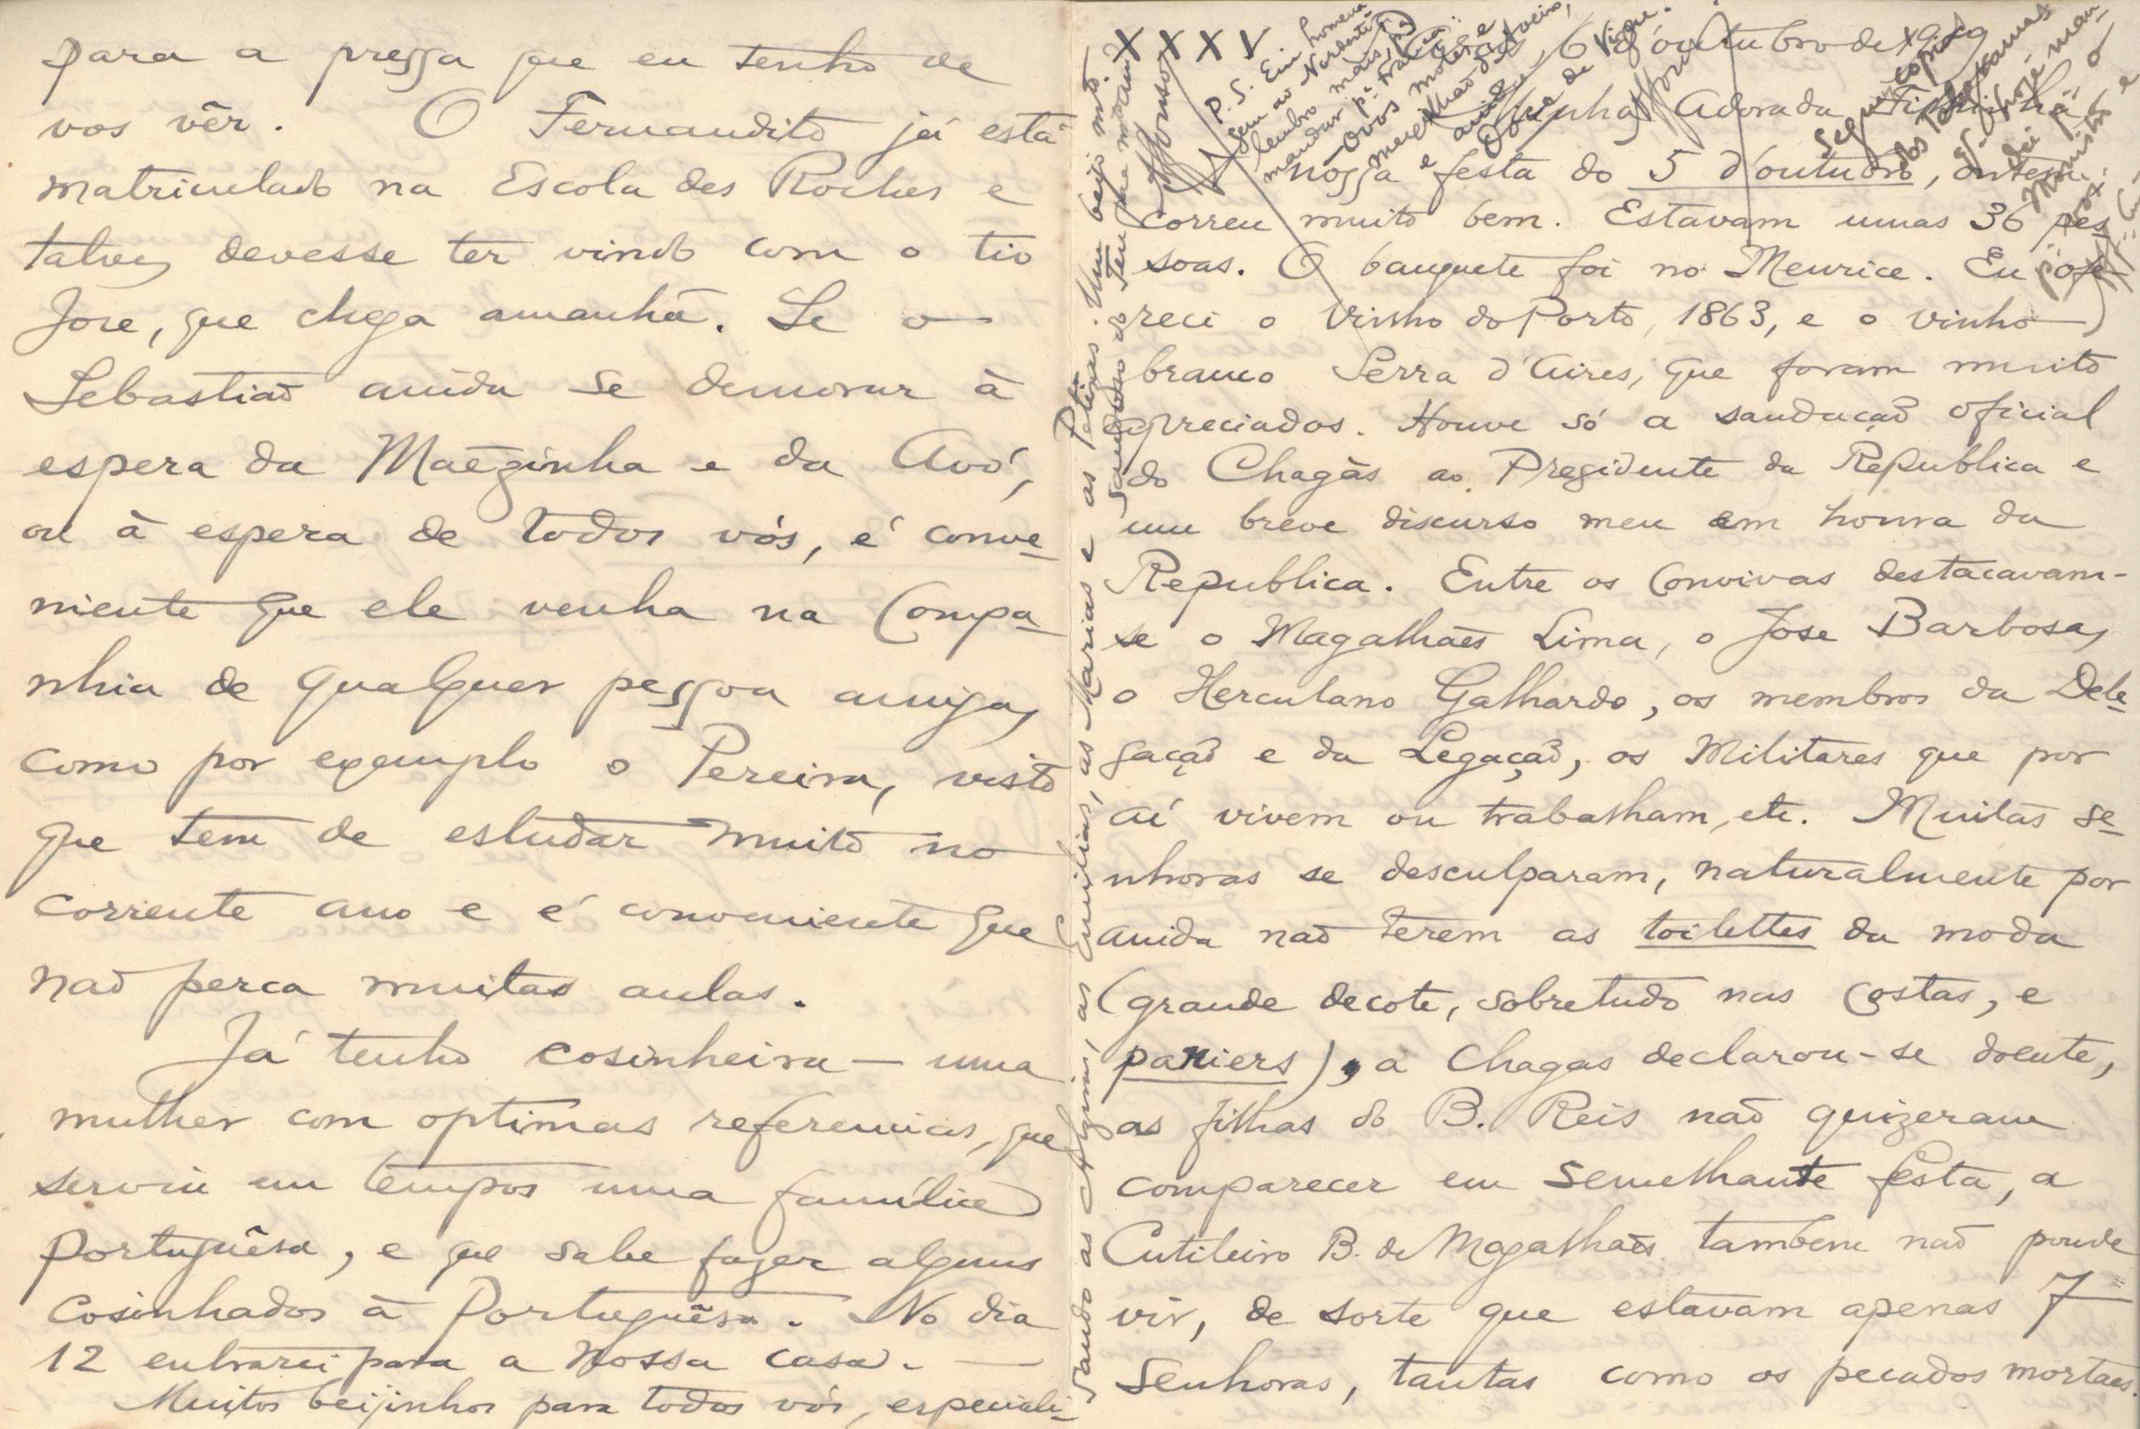 para a pressa que eu tenho de
vos vêr. O Fernandito já está
matriculado na Escola des Roches e
talvez devesse ter vindo com o tio
José, que chega amanhã. Se o
Sebastião ainda se demorar à
espera da Mãezinha e da Avó,
ou à espera de todos vós, é conve-
niente que ele venha na Compa-
nhia de qualquer pessoa amiga,
como por exemplo o Pereira, visto
que tem de estudar muito no
corrente ano e é conveniente que
não perca muitas aulas.
Já tenho cosinheira — uma
mulher com optimas referencias, que
serviu em tempos uma família
portuguêsa, e que sabe fazer alguns
cosinhados à Portuguêsa. No dia
12 entrarei para a nossa casa. —
Muitos beijinhos para todos vós, especiali-
XXXV
6 d'outubro de 1919
Minha Adorada Filhinha
A nossa festa do 5 d'outubro, ontem,
correu muito bem. Estavam umas 36 pes-
soas. O banquete foi no Meurice. Eu ofe-
reci o Vinho do Porto, 1863, e o vinho
branco Serra d'Aires, que foram muito
apreciados. Houve só a saudação oficial
do Chagas ao Presidente da Republica e
um breve discurso meu em honra da
Republica. Entre os Convivas destacavam-
se o Magalhães Lima, o José Barbosa,
o Herculano Galhardo, os membros da Dele-
gação e da Legação, os Militares que por
aí vivem ou trabalham, etc. Muitas se-
nhoras se desculparam, naturalmente por
ainda não terem as toilettes da moda
(grande decote, sobretudo nas costas, e
paniers), a Chagas declarou-se doente,
as filhas do B. Reis não quizeram
comparecer em semelhante festa, a
Cutileiro B. de Magalhães tambem não poude
vir, de sorte que estavam apenas 7
Senhoras, tantas como os pecados mortaes.
saudo as Alziras, as Emilias, as Marias e as Patricias. Um beijo mto.
saudoso do Teu
Afonso
P.S. Em homenagem ao Nordentin
lembro mais, pa
mandar pa França:
Ovos moles e
mexilhão d'Aveiro,
e ainda
Doce de Vizeu.
Seguem copias
dos Telegramas